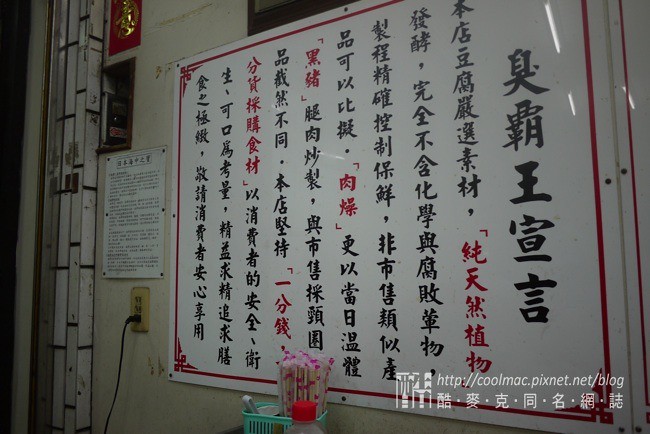 臭霸王宣言
本店豆腐嚴選素材，「純天然植物」
發酵，完全不含化學與腐敗葷物，
製程精確控制保鮮，非市售類似產
品可以比擬．「肉燥」更以當日溫體
「黑豬」腿肉炒製，與市售採頸圈
品截然不同．本店堅持「一分錢，
分貨採購食材」以消費者的安全、衛
生、可口為考量，精益求精追求膳
食之極緻，敬請消費者安心享用
http://coolmac.pixnet.net/blog
酷·麥克同名網誌